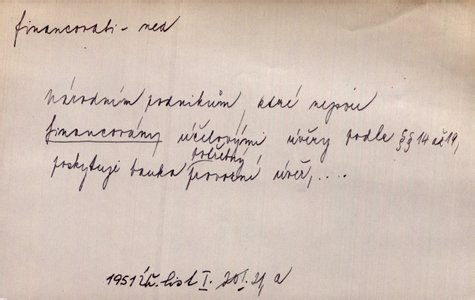 financovati - ned
Národním podnikům, které nejsou
financovány účelovými úvěry podle §§ 14 až 19,
potřebný
poskytuje banka provozní úvěr, ....
1951 Úř. list I.